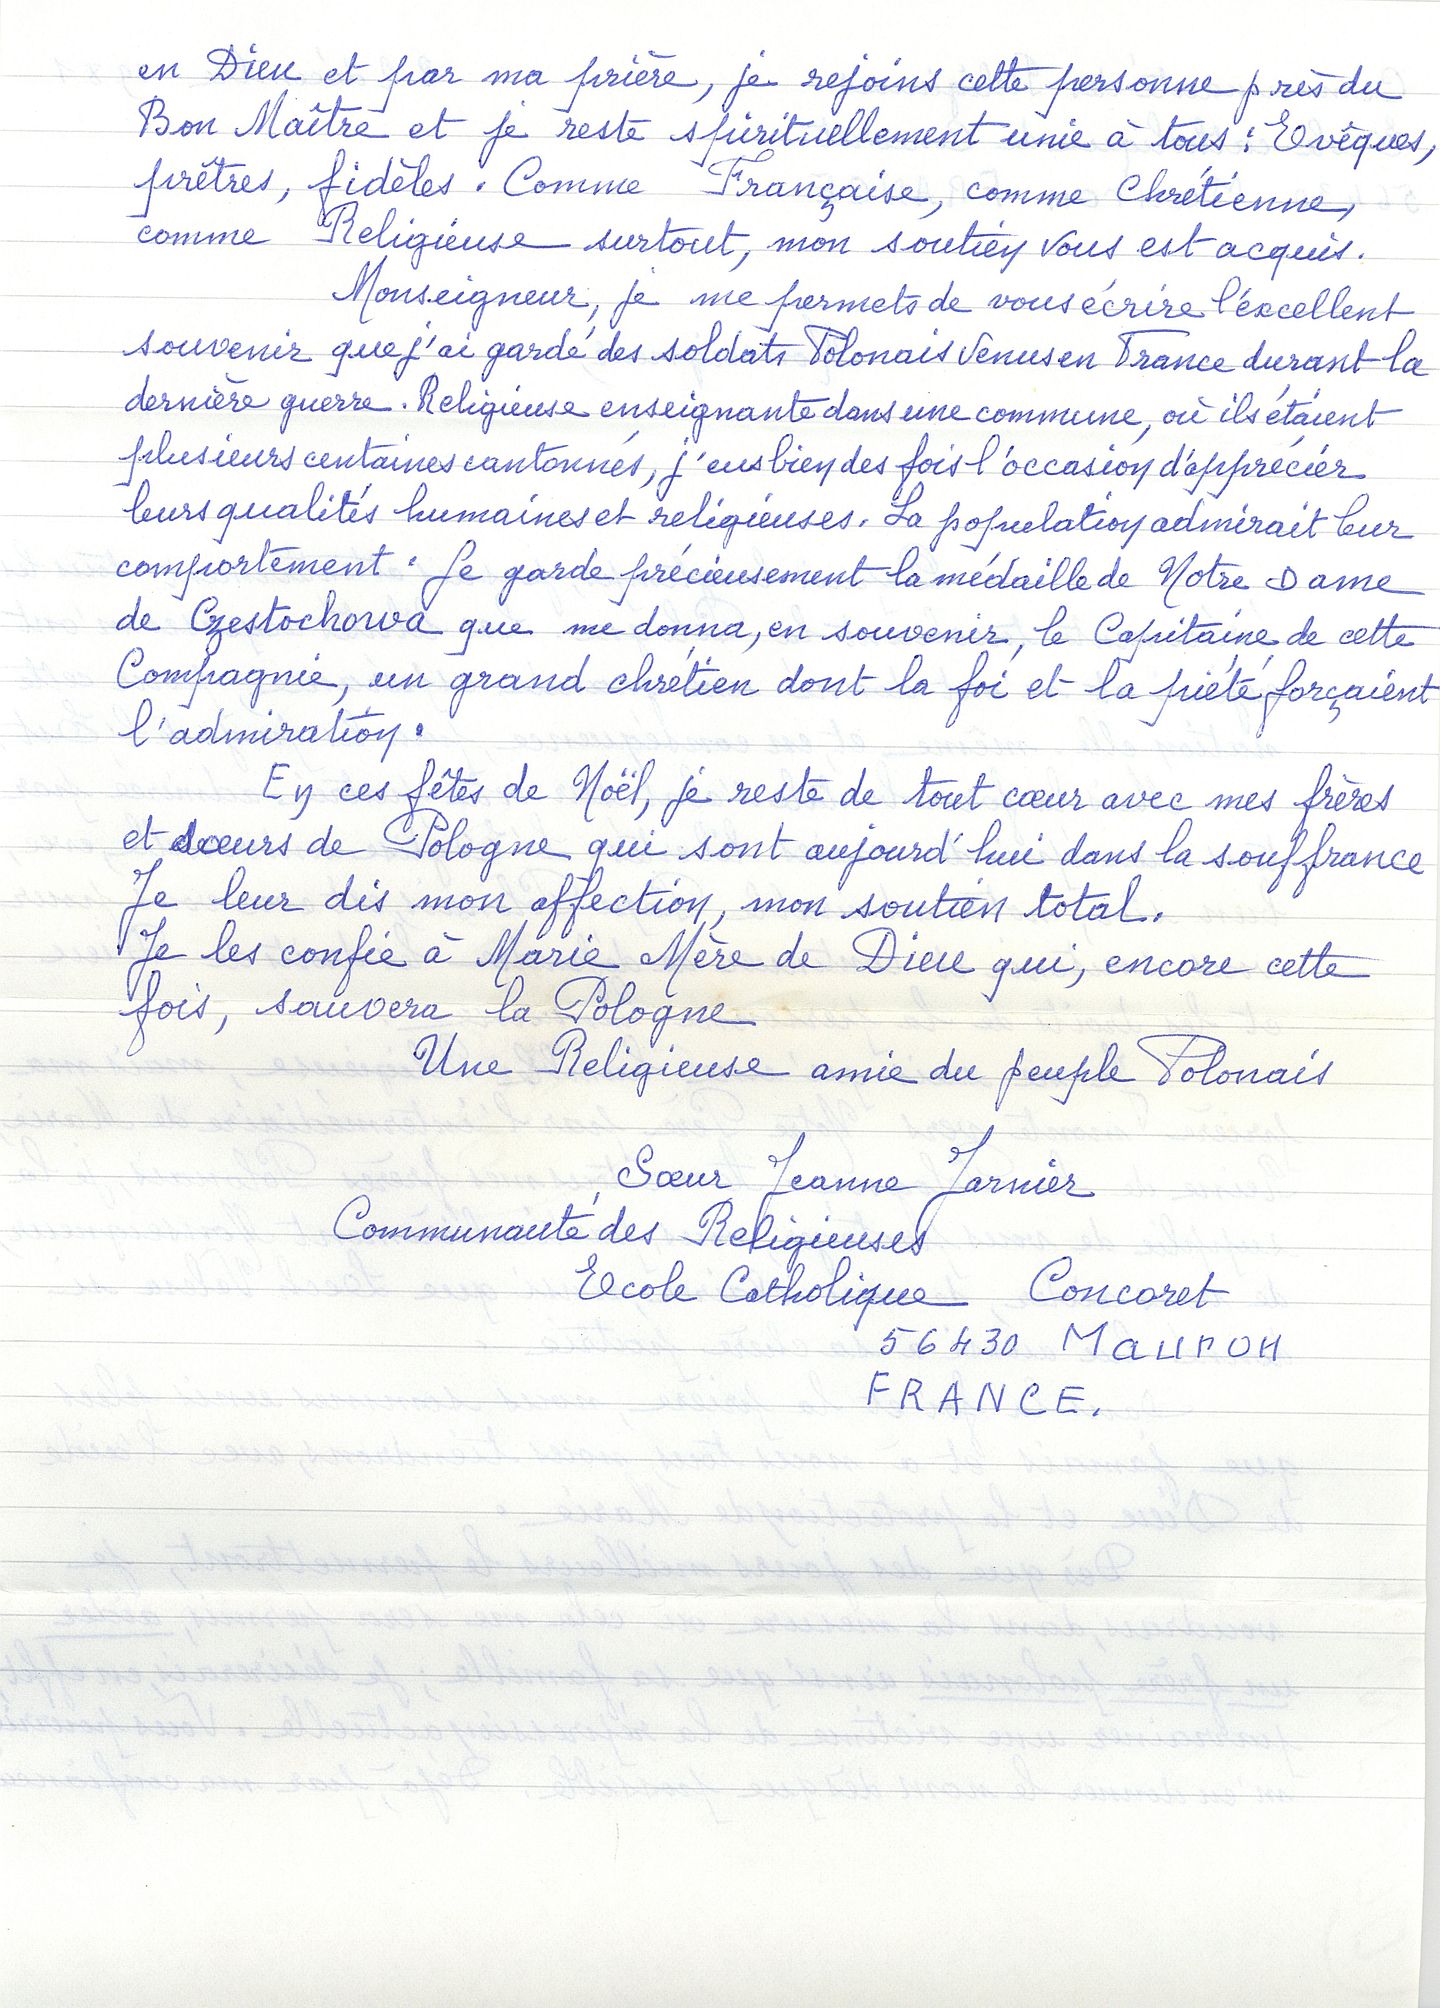 en Dieu et par ma prière, je rejoins cette personne près du
Bon Maître et je reste spirituellement unie à tous : Evêques,
prêtres, fidèles. Comme Française, comme Chrétienne,
comme Religieuse surtout, mon soutien vous est acquis.
Monseigneur, je me permets de vous écrire l'excellent
souvenir que j'ai gardé des soldats Polonais venus en France durant la
dernière guerre. Religieuse enseignante dans une commune, où ils étaient
plusieurs centaines cantonnés, j'eus bien des fois l'occasion d'apprécier
leurs qualités humaines et religieuses. La population admirait leur
comportement. Je garde précieusement la médaille de Notre Dame
de Częstochowa que me donna, en souvenir, le Capitaine de cette
Compagnie, un grand chrétien dont la foi et la piété forçaient
l'admiration.
En ces fêtes de Noël, je reste de tout cœur avec mes frères
et sœurs de Pologne qui sont aujourd'hui dans la souffrance
Je leur dis mon affection, mon soutien total.
Je les confie à Marie Mère de Dieu qui, encore cette
fois, sauvera la Pologne
Une Religieuse amie du peuple Polonais
Sœur Jeanne Jarnier
Communauté des Religieuses
Ecole Catholique Concoret
56430 Mauron
FRANCE.